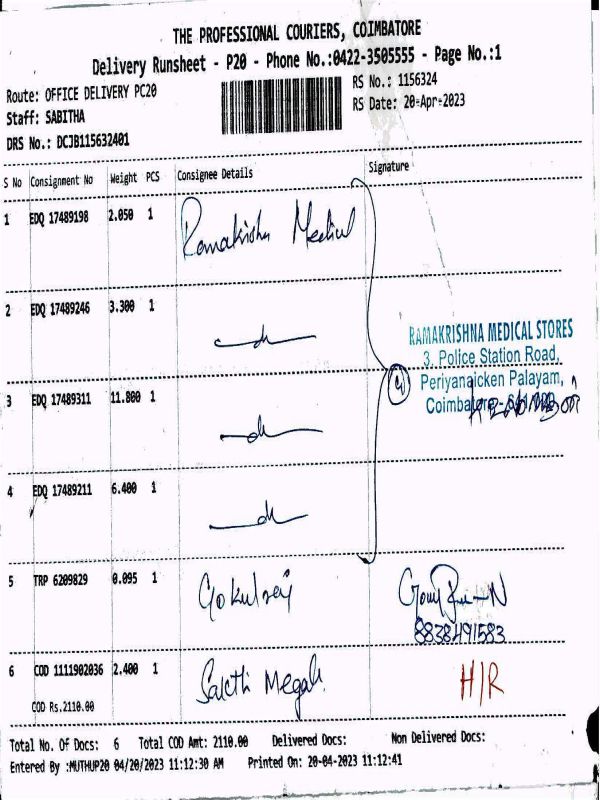 THE PROFESSIONAL COURIERS, COIMBATORE
Delivery Runsheet - P20 - Phone No.:0422-3505555 - Page No.:1
Route: OFFICE DELIVERY PC20
RS No.: 1156324
Staff: SABITHA
RS Date: 20-Apr-2023
DRS No.: DCJB115632401
S No Consignment No Weight PCS Consignee Details Signature
1 EDQ 17489198 2.050 1 Ramakrishna Medical
2 EDQ 17489246 3.300 1
RAMAKRISHNA MEDICAL STORES
3, Police Station Road,
Periyanaicken Palayam,
Coimbatore -
4
3 EDQ 17489311 11.800 1
4 EDQ 17489211 6.400 1
5 TRP 6209829 0.095 1 Gokulraj
8838491583
6 COD 1111902036 2.400 1 Sakthi Megala H/R
COD Rs.2110.00
Total No. Of Docs: 6 Total COD Amt: 2110.00 Delivered Docs: Non Delivered Docs:
Entered By :MUTHUP20 04/20/2023 11:12:30 AM Printed On: 20-04-2023 11:12:41